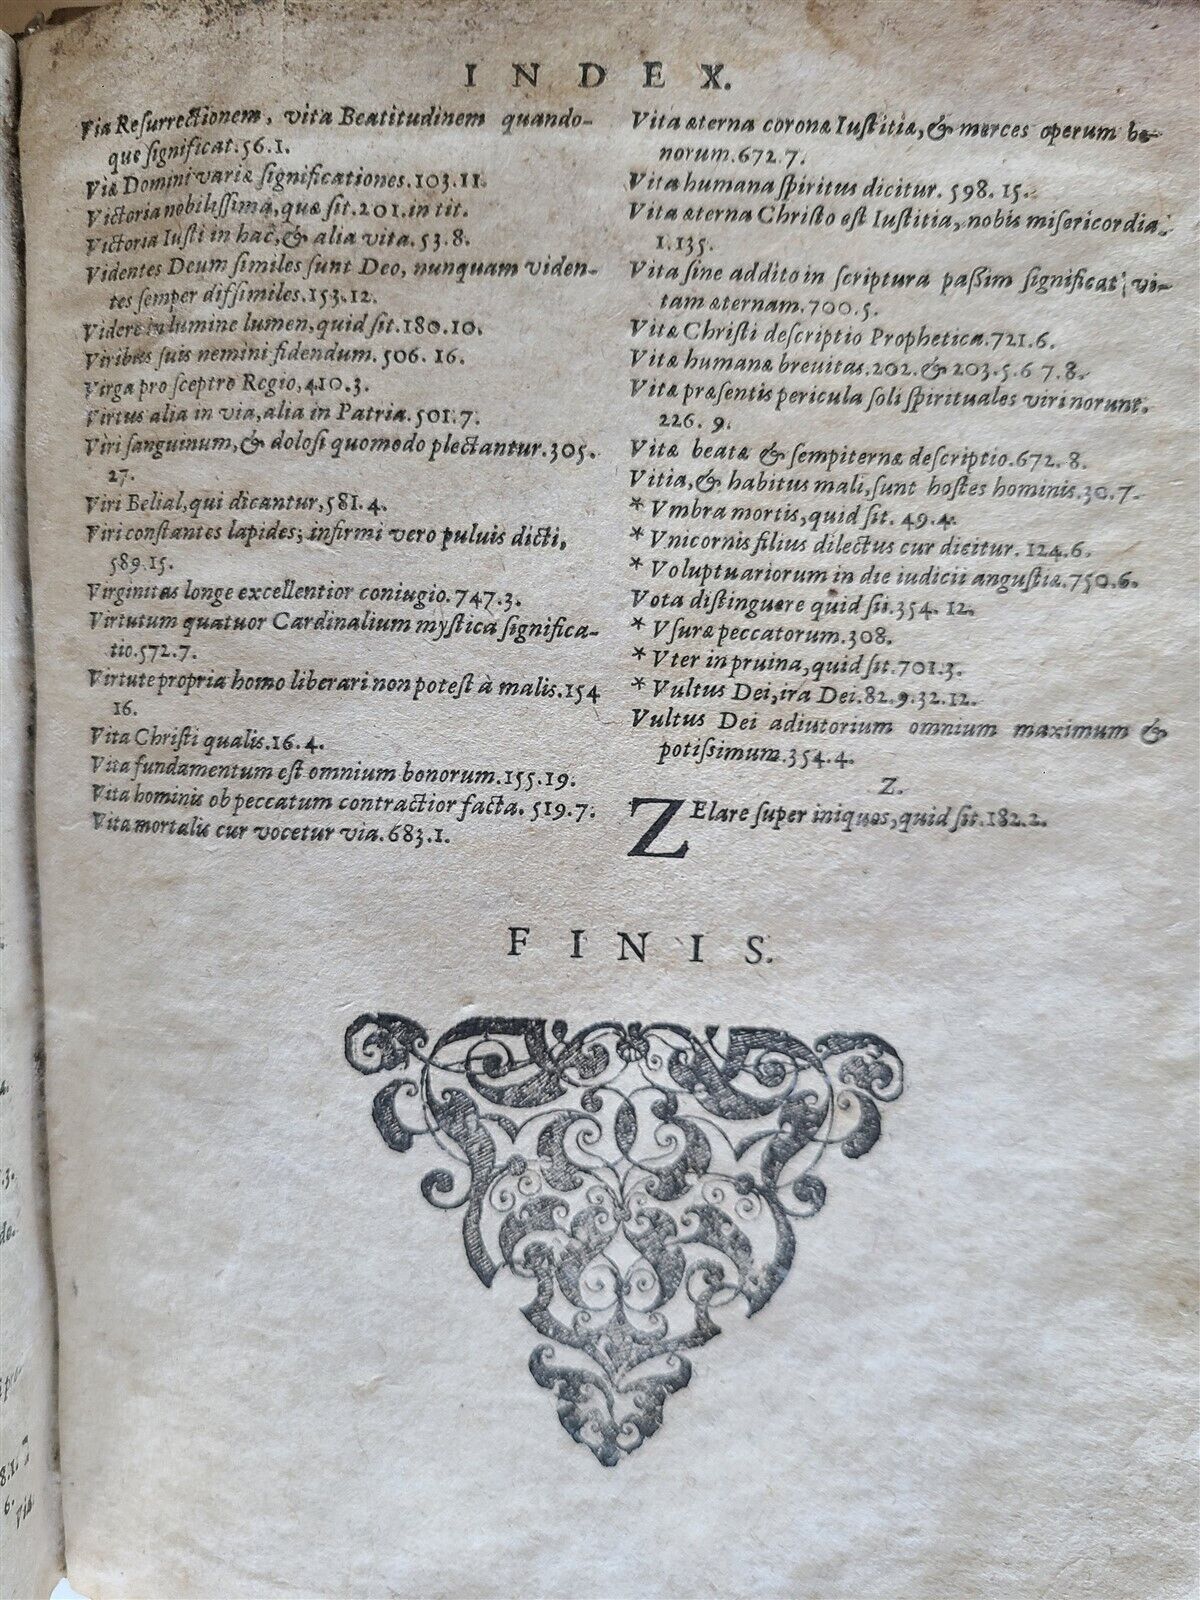 INDEX.
Via Reſurrectionem, vita Beatitudinem quando-
que ſignificat.56.1.
Viæ Domini variæ ſignificationes.103.11.
Victoria nobiliſſima, quæ ſit.201.in tit.
Victoria Iuſti in hac, & alia vita.53.8.
Videntes Deum ſimiles ſunt Deo, nunquam viden-
tes ſemper diſſimiles.153.12.
Videre in lumine lumen, quid ſit.180.10.
Viribus ſuis nemini fidendum.506.16.
Virga pro ſceptro Regio,410.3.
Virtus alia in via, alia in Patria.501.7.
Viri ſanguinum, & doloſi quomodo plectantur.305.
27.
Viri Belial, qui dicantur,581.4.
Viri conſtantes lapides; infirmi vero puluis dicti,
589.15.
Virginitas longe excellentior coniugio.747.3.
Virtutum quatuor Cardinalium myſtica ſignifica-
tio.572.7.
Virtute propria homo liberari non poteſt à malis.154
16.
Vita Chriſti qualis.16.4.
Vita fundamentum eſt omnium bonorum.155.19.
Vita hominis ob peccatum contractior facta.519.7.
Vita mortalis cur vocetur via.683.1.
Vita æterna corona Iuſtitiæ, & merces operum bo-
norum.672.7.
Vita humana ſpiritus dicitur. 598.15.
Vita æterna Chriſto eſt Iuſtitia, nobis miſericordia.
1.135.
Vita ſine addito in ſcriptura paßim ſignificat vi-
tam æternam.700.5.
Vitæ Chriſti deſcriptio Prophetica.721.6.
Vitæ humanæ breuitas.202.& 203.5.6 7.8.
Vitæ præſentis pericula ſoli ſpirituales viri norunt.
226. 9.
Vitæ beatæ & ſempiternæ deſcriptio.672.8.
Vitia, & habitus mali, ſunt hoſtes hominis.30.7.
* Vmbra mortis, quid ſit. 49.4.
* Vnicornis filius dilectus cur dicitur. 124.6.
* Voluptuariorum in die iudicii anguſtiæ.750.6.
Vota diſtinguere quid ſit.354. 12.
* Vſuræ peccatorum.308.
* Vter in pruina, quid ſit.701.3.
* Vultus Dei, ira Dei.82.9.32.12.
Vultus Dei adiutorium omnium maximum &
potiſsimum.354.4.
Z.
ZElare ſuper iniquos, quid ſit.182.2.
FINIS.